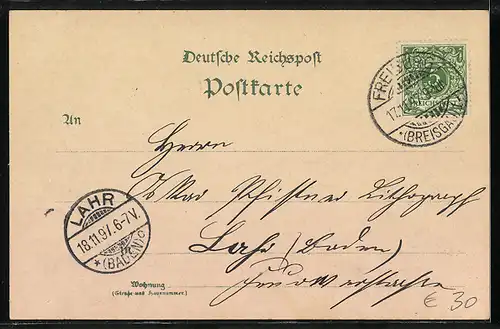 Deutsche Reichspost
Postkarte
FREIBURG
17.11.
*(BREISGAU)
REICHSPOST
An
Herrn
Pfistner Lithograph
Lahr (Baden)
LAHR
18.11.97. 6-7V.
*(BADEN)
Wohnung
(Straße und Hausnummer)
€ 30